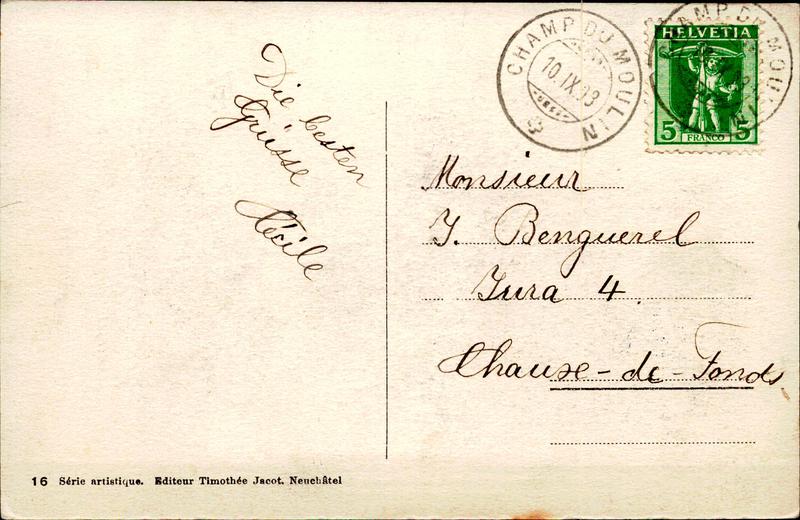 Die besten
Grüsse
Cécile
CHAMP-DU-MOULIN
10.IX.13
HELVETIA
5 FRANCO 5
Monsieur
J. Benguerel
Jura 4.
Chause-de-Fonds
16 Série artistique. Editeur Timothée Jacot. Neuchâtel